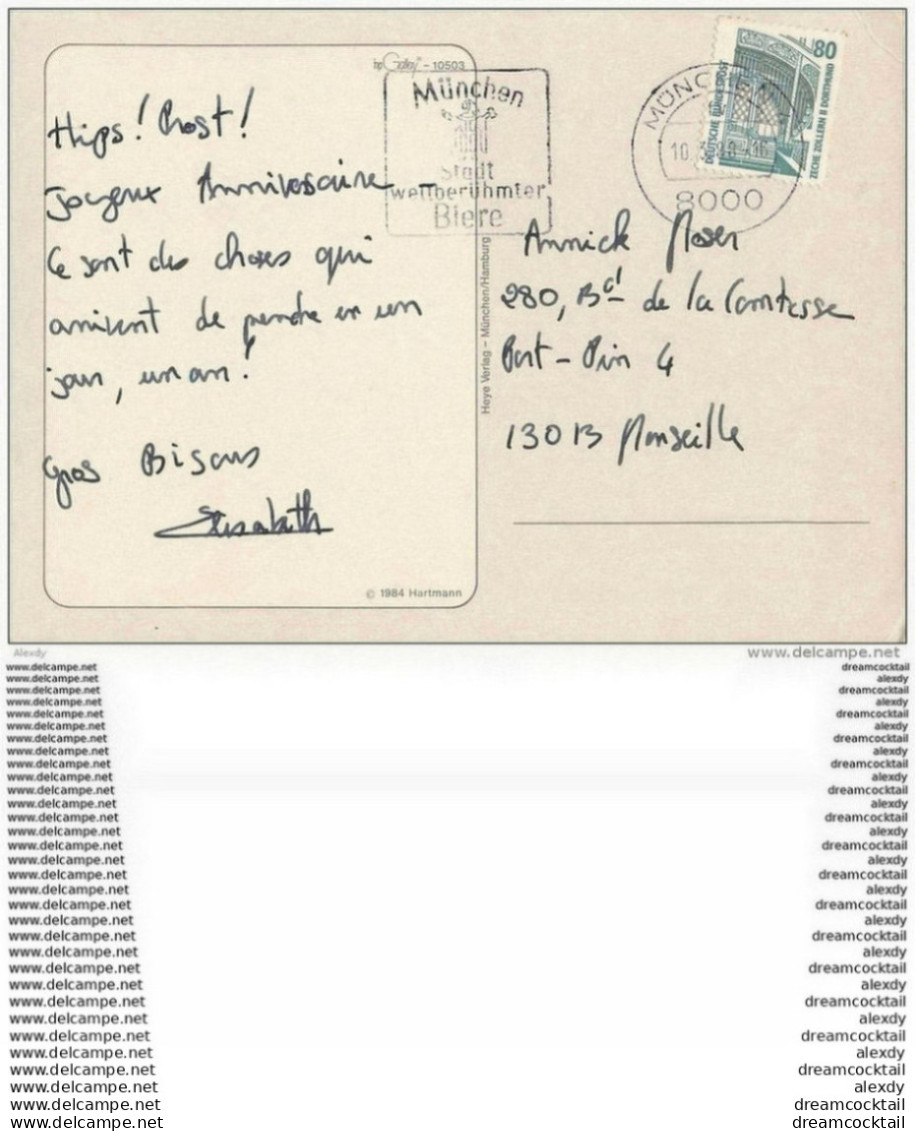 Hips! Prost!
Joyeux Anniversaire_
Ce sont des choses qui
arrivent de prendre en un
jour, un an!
Gros Bisous
Elisabeth
10503
München
Stadt
weltberühmter
Biere
MÜNCHEN
8000
80
DEUTSCHE BUNDESPOST
ZECHE ZOLLERN II DORTMUND
Annick Moser
280, Bd de la Comtesse
Port-Pin 4
13013 Marseille
Heye Verlag – München/Hamburg
© 1984 Hartmann
Alexdy
www.delcampe.net
www.delcampe.net dreamcocktail
www.delcampe.net alexdy
www.delcampe.net dreamcocktail
www.delcampe.net alexdy
www.delcampe.net dreamcocktail
www.delcampe.net alexdy
www.delcampe.net dreamcocktail
www.delcampe.net alexdy
www.delcampe.net dreamcocktail
www.delcampe.net alexdy
www.delcampe.net dreamcocktail
www.delcampe.net alexdy
www.delcampe.net dreamcocktail
www.delcampe.net alexdy
www.delcampe.net dreamcocktail
www.delcampe.net alexdy
www.delcampe.net dreamcocktail
www.delcampe.net alexdy
www.delcampe.net dreamcocktail
www.delcampe.net alexdy
www.delcampe.net dreamcocktail
www.delcampe.net alexdy
www.delcampe.net dreamcocktail
www.delcampe.net alexdy
www.delcampe.net dreamcocktail
www.delcampe.net alexdy
www.delcampe.net dreamcocktail
www.delcampe.net alexdy
www.delcampe.net dreamcocktail
www.delcampe.net alexdy
www.delcampe.net dreamcocktail
www.delcampe.net dreamcocktail